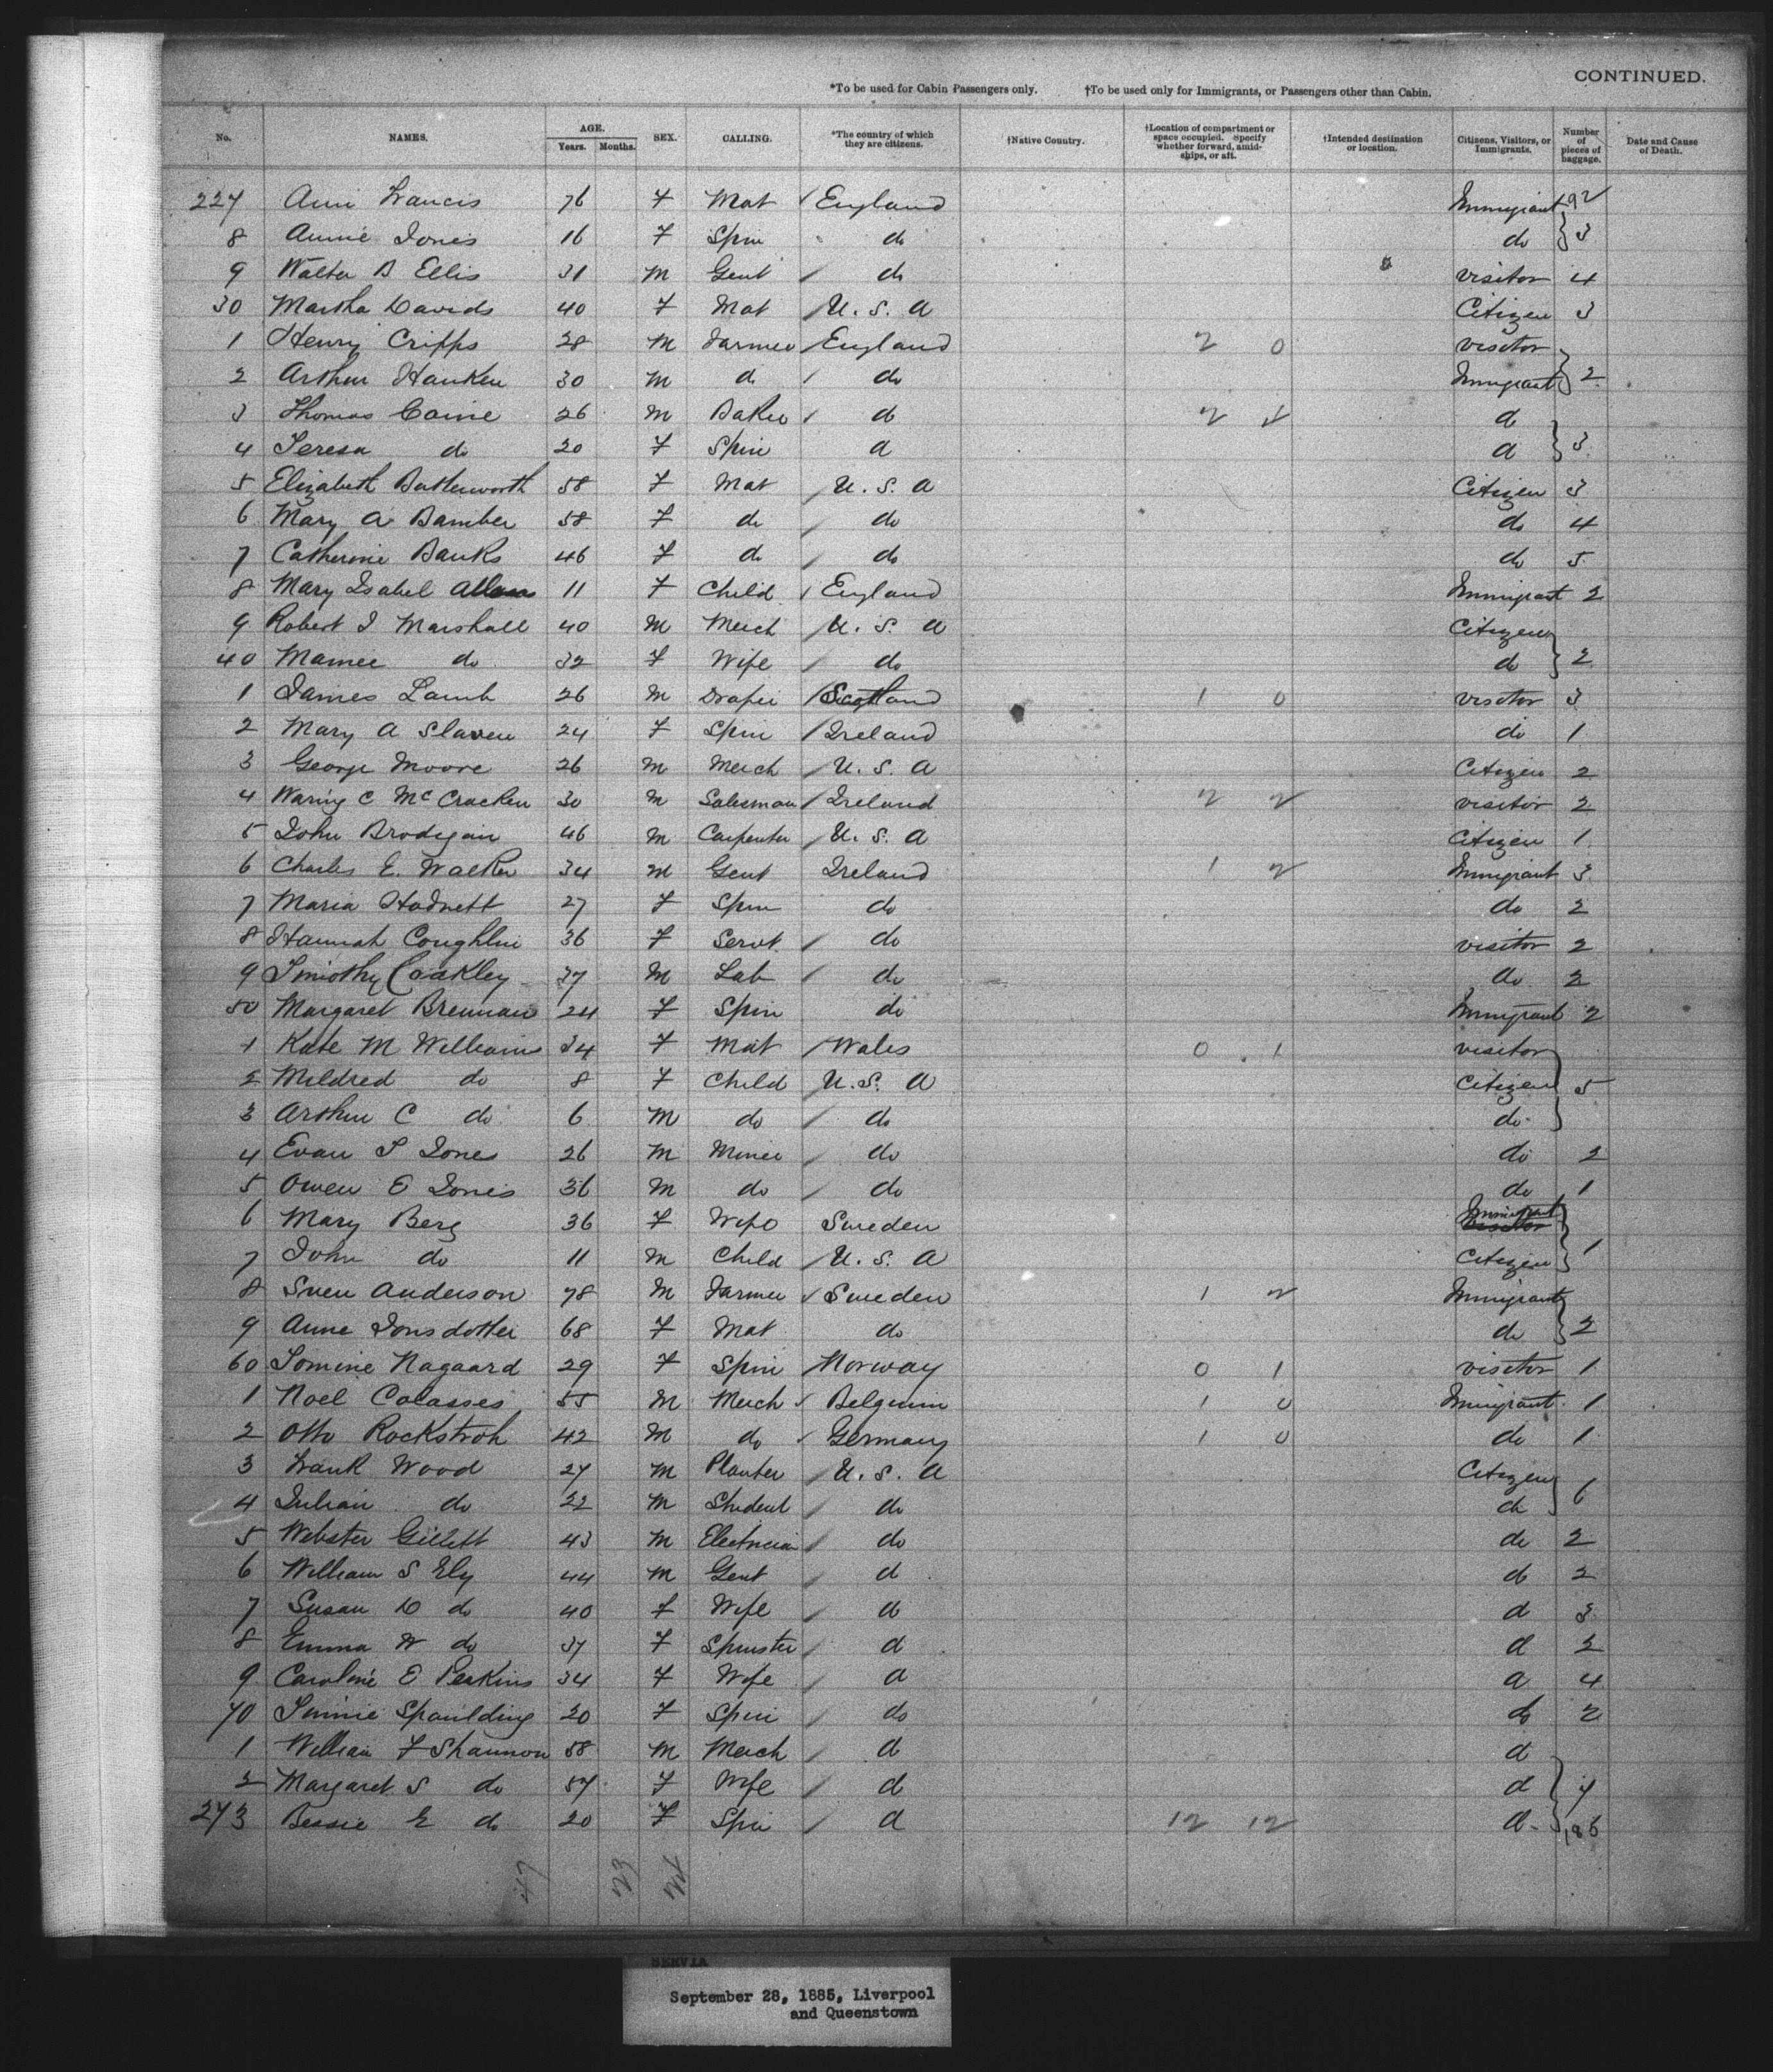 CONTINUED.
*To be used for Cabin Passengers only. †To be used only for Immigrants, or Passengers other than Cabin.
No. NAMES. AGE. Years. Months. SEX. CALLING. *The country of which they are citizens. †Native Country. †Location of compartment or space occupied. Specify whether forward, amidships, or aft. †Intended destination or location. Citizens, Visitors, or Immigrants. Number of pieces of baggage. Date and Cause of Death.
227 Ann Francis 76 F Mat England Immigrant 92
8 Annie Jones 16 F Spin do do 3
9 Walter B Ellis 31 M Gent do visitor 4
30 Martha Davids 40 F Mat U. S. A Citizen 3
1 Henry Cripps 28 M Farmer England 2 0 visitor
2 Arthur Hanken 30 M do do Immigrant 2
3 Thomas Caine 26 M Baker do 2 do
4 Teresa do 20 F Spin do do 3
5 Elizabeth Butterworth 58 F Mat U. S. A Citizen 3
6 Mary A Bamber 58 F do do do 4
7 Catherine Banks 46 F do do do 5
8 Mary Isabel 11 F Child England Immigrant 2
9 Robert I Marshall 40 M Merch U. S. A Citizen
40 Mamee do 32 F Wife do do 2
1 James Lamb 26 M Draper Scotland 1 0 visitor 3
2 Mary A Slaven 24 F Spin Ireland do 1
3 George Moore 26 M Merch U. S. A Citizen 2
4 Waring C McCracken 30 M Salesman Ireland 2 2 visitor 2
5 John Brodigan 46 M Carpenter U. S. A Citizen 1
6 Charles E. Walker 34 M Gent Ireland 1 2 Immigrant 3
7 Maria Hadnett 27 F Spin do do 2
8 Hannah Coughlin 36 F Servt do visitor 2
9 Timothy Coakley 37 M Lab do do 2
50 Margaret Brennan 24 F Spin do Immigrant 2
1 Kate M Williams 34 F Mat Wales 0 1 visitor
2 Mildred do 8 F Child U. S. A Citizen 5
3 Arthur C do 6 M do do do
4 Evan T Jones 26 M Miner do do 2
5 Owen E Jones 36 M do do do 1
6 Mary Berg 36 F Wife Sweden Immigrant
7 John do 11 M Child U. S. A Citizen 1
8 Sven Anderson 78 M Farmer Sweden 1 2 Immigrant
9 Anne Jonsdotter 68 F Mat do do 2
60 Nagaard 29 F Spin Norway 0 1 visitor 1
1 Noel Colasses 55 M Merch Belgium 1 0 Immigrant 1
2 Otto Rockstroh 42 M do Germany 1 0 do 1
3 Frank Wood 27 M Planter U. S. A Citizen
4 Julian do 22 M Student do do 6
5 Webster Gillett 43 M Electrician do do 2
6 William S Ely 44 M Gent do do 2
7 Susan D do 40 F Wife do do 3
8 Emma W do 37 F Spinster do do 2
9 Caroline E Perkins 34 F Wife do do 4
70 Jennie Spaulding 20 F Spin do do 2
1 William F Shannon 58 M Merch do do
2 Margaret S do 57 F Wife do do 7
273 Bessie E do 20 F Spin do 12 12 do
47 23 24
SERVIA
September 28, 1885, Liverpool
and Queenstown